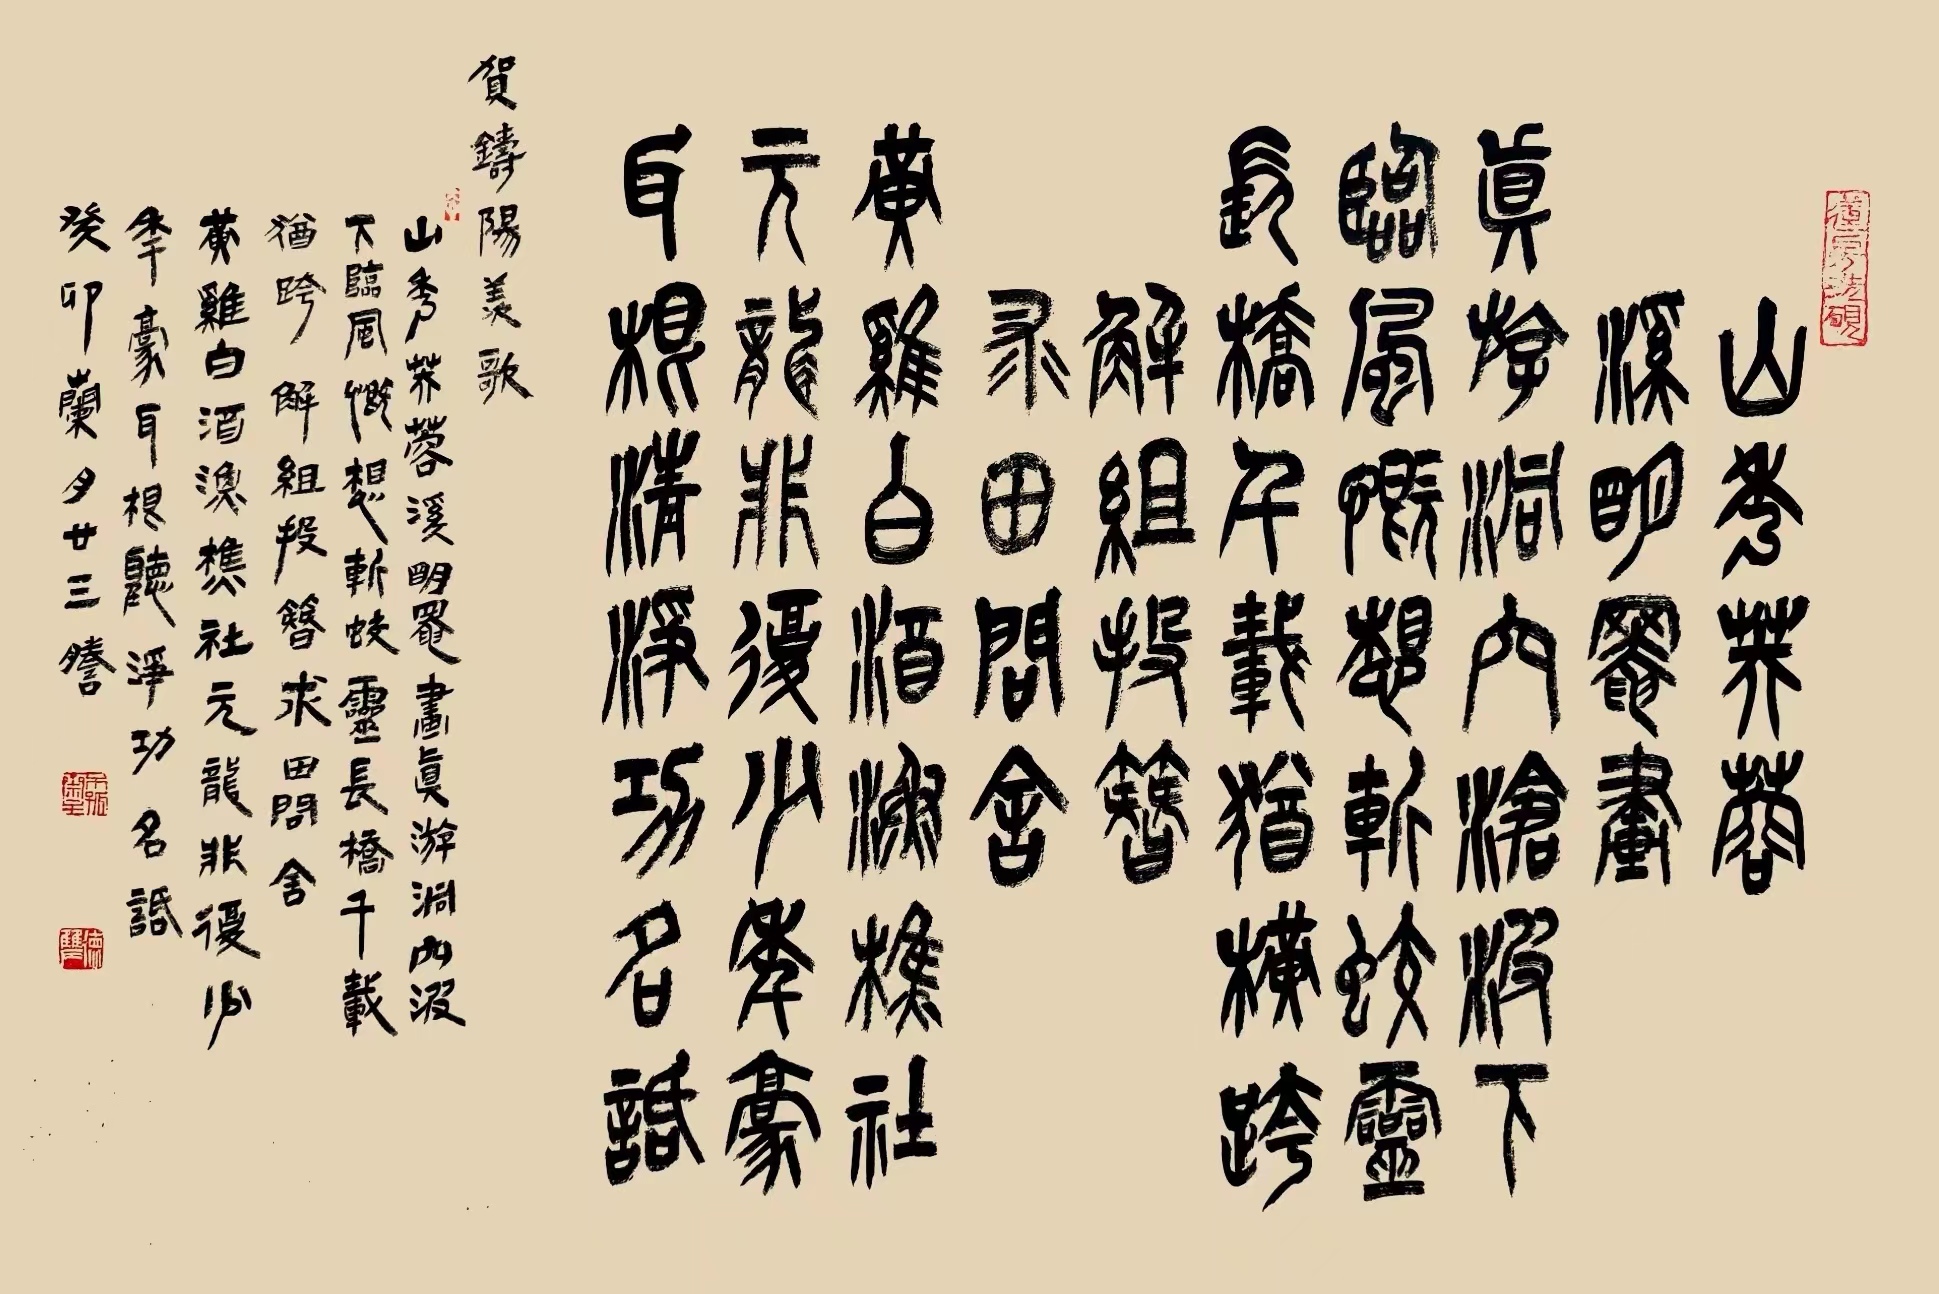 山秀芙蓉
溪明罨畫
真游洞内滄波下
臨風慨想斬蛟靈
長橋千載猶橫跨
解組投簪
求田問舍
黄雞白酒漁樵社
元龍非復少年豪
耳根清淨功名話
賀鑄陽羡歌
山秀芙蓉溪明罨畫真游洞内波
下臨風慨想斬蛟靈長橋千載
猶跨解組投簪求田問舍
黄雞白酒漁樵社元龍非復少
年豪耳根聽淨功名話
癸卯蘭夕廿三